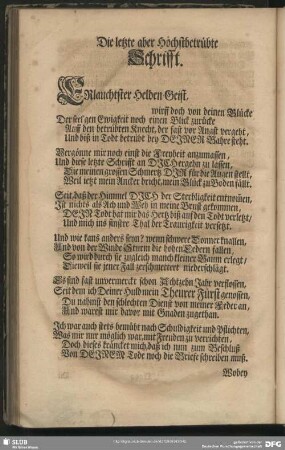 Die letzte aber Höchstbetrübte
Schrifft.
ERlauchtster Helden Geist,
wirff doch von deinen Blücke
Der sel'gen Ewigkeit noch einen Blick zurücke
Auff den betrübten Knecht, der fast vor Angst vergeht,
Und biß in Todt betrübt bey DEINER Bahre steht.
Vergönne mir noch einst die Freyheit anzumassen,
Und diese letzte Schrifft an DICH ergehn zu lassen,
Die meinen grossen Schmertz DIR für die Augen stelle,
Weil jetzt mein Ancker bricht, mein Glück zu Boden fällt.
Seit daß der Himmel DICH der Sterbligkeit entwendten,
Ist nichts als Ach und Weh in meine Brust gekommen,
DEIN Todt hat mir das Hertz biß auf den Todt verletzt,
Und mich ins finstre Thal der Traurigkeit versetzt.
Und wie kans anders seyn? wenn schwere Donner knallen,
Und von der Winde Sturm die hohen Cedern fallen,
So wird durch sie zugleich manch kleiner Baum erlegt,
Dieweil sie jener Fall zerschmettert niederschlägt.
Es sind fast unvermerckt schon Achtzehn Jahr verflossen,
Seit dem ich Deiner Huld mein Theurer Fürst genossen,
Du nahmst den schlechten Dienst von meiner Feder an,
Und warest mir davor mit Gnaden zugethan.
Ich war auch stets bemüht nach Schuldigkeit und Pflichten,
Was mir nur möglich war, mit Freuden zu verrichten,
Doch dieses kränckt mich, daß ich nun zum Beschluß
Von DEINEM Tode noch die Briefe schreiben muß.
Wobey
SLUB
DFG